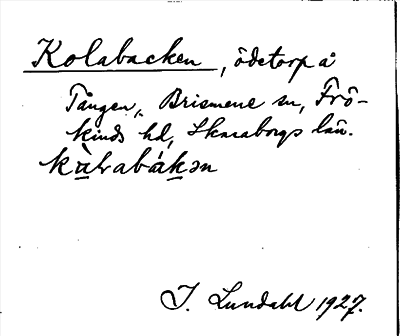 Kolabacken, ödetorp å
Tången, Brismene sn, Frö-
kinds hd, Skaraborgs län.
kàlvabákən
I. Lundahl 1927.